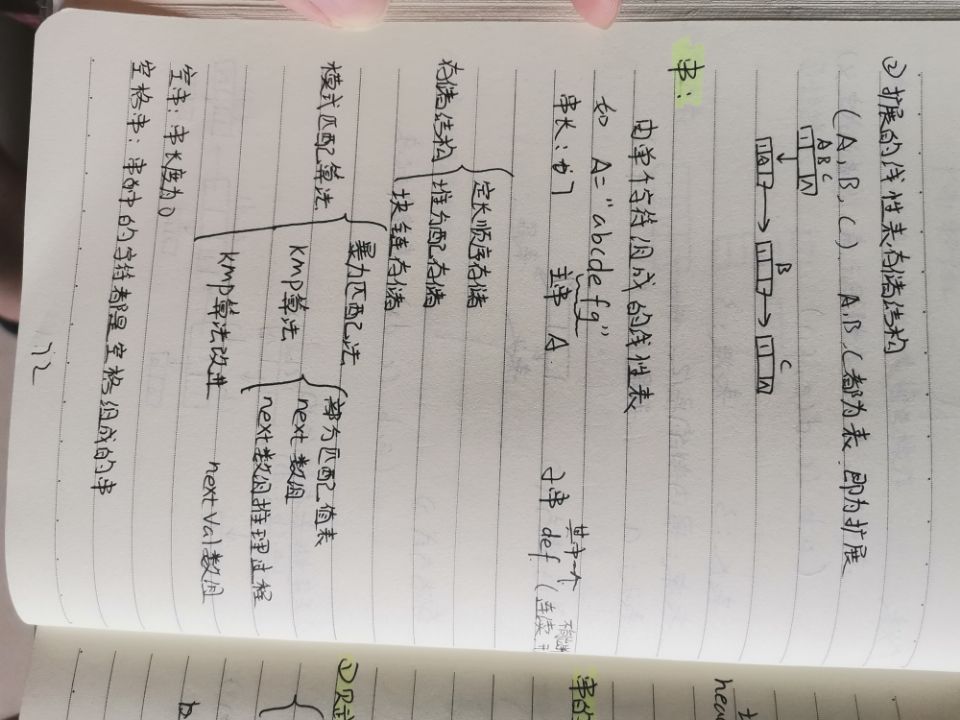 ② 扩展的线性表存储结构
(A, B, C) A,B,C都为表 即为扩展
A B C
B
C
串:
由单个字符组成的线性表
如 A="abcdefg"
串长: 为7 主串 A 子串 def
其中一个
存储结构
定长顺序存储
堆分配存储
块链存储
模式匹配算法
暴力匹配法
kmp算法
部分匹配值表
next数组
next数组推理过程
kmp算法改进 nextval数组
空串: 串长度为0
空格串: 串中的字符都是空格组成的串